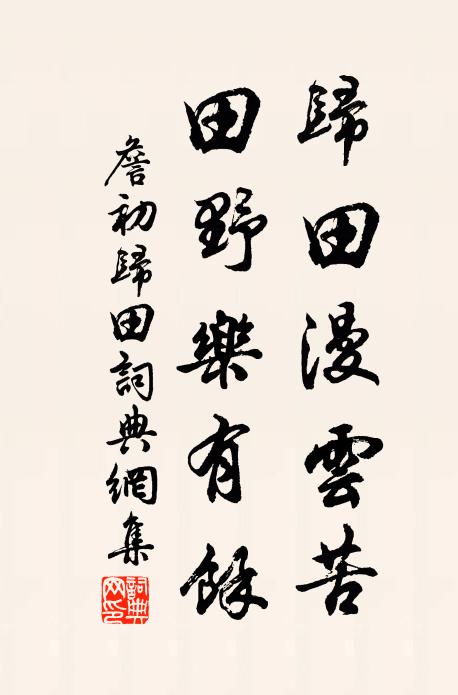 歸田漫雲苦
田野樂有餘
詹初歸田詞典網集
詞典網印